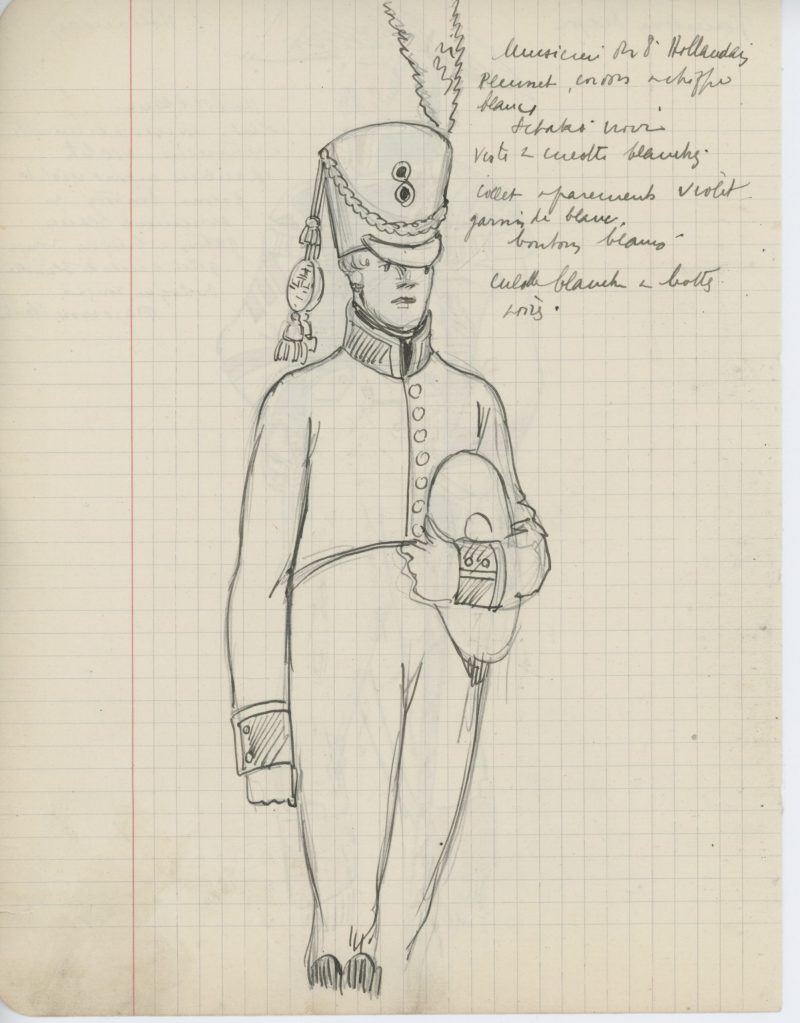 Musicien du 8e Hollandais
Plumet, cordons & chiffre
blancs
Schako noir
Veste & culotte blanches.
Collet & parements violet
garnis de blanc.
boutons blancs
culotte blanche & bottes
noires.
8